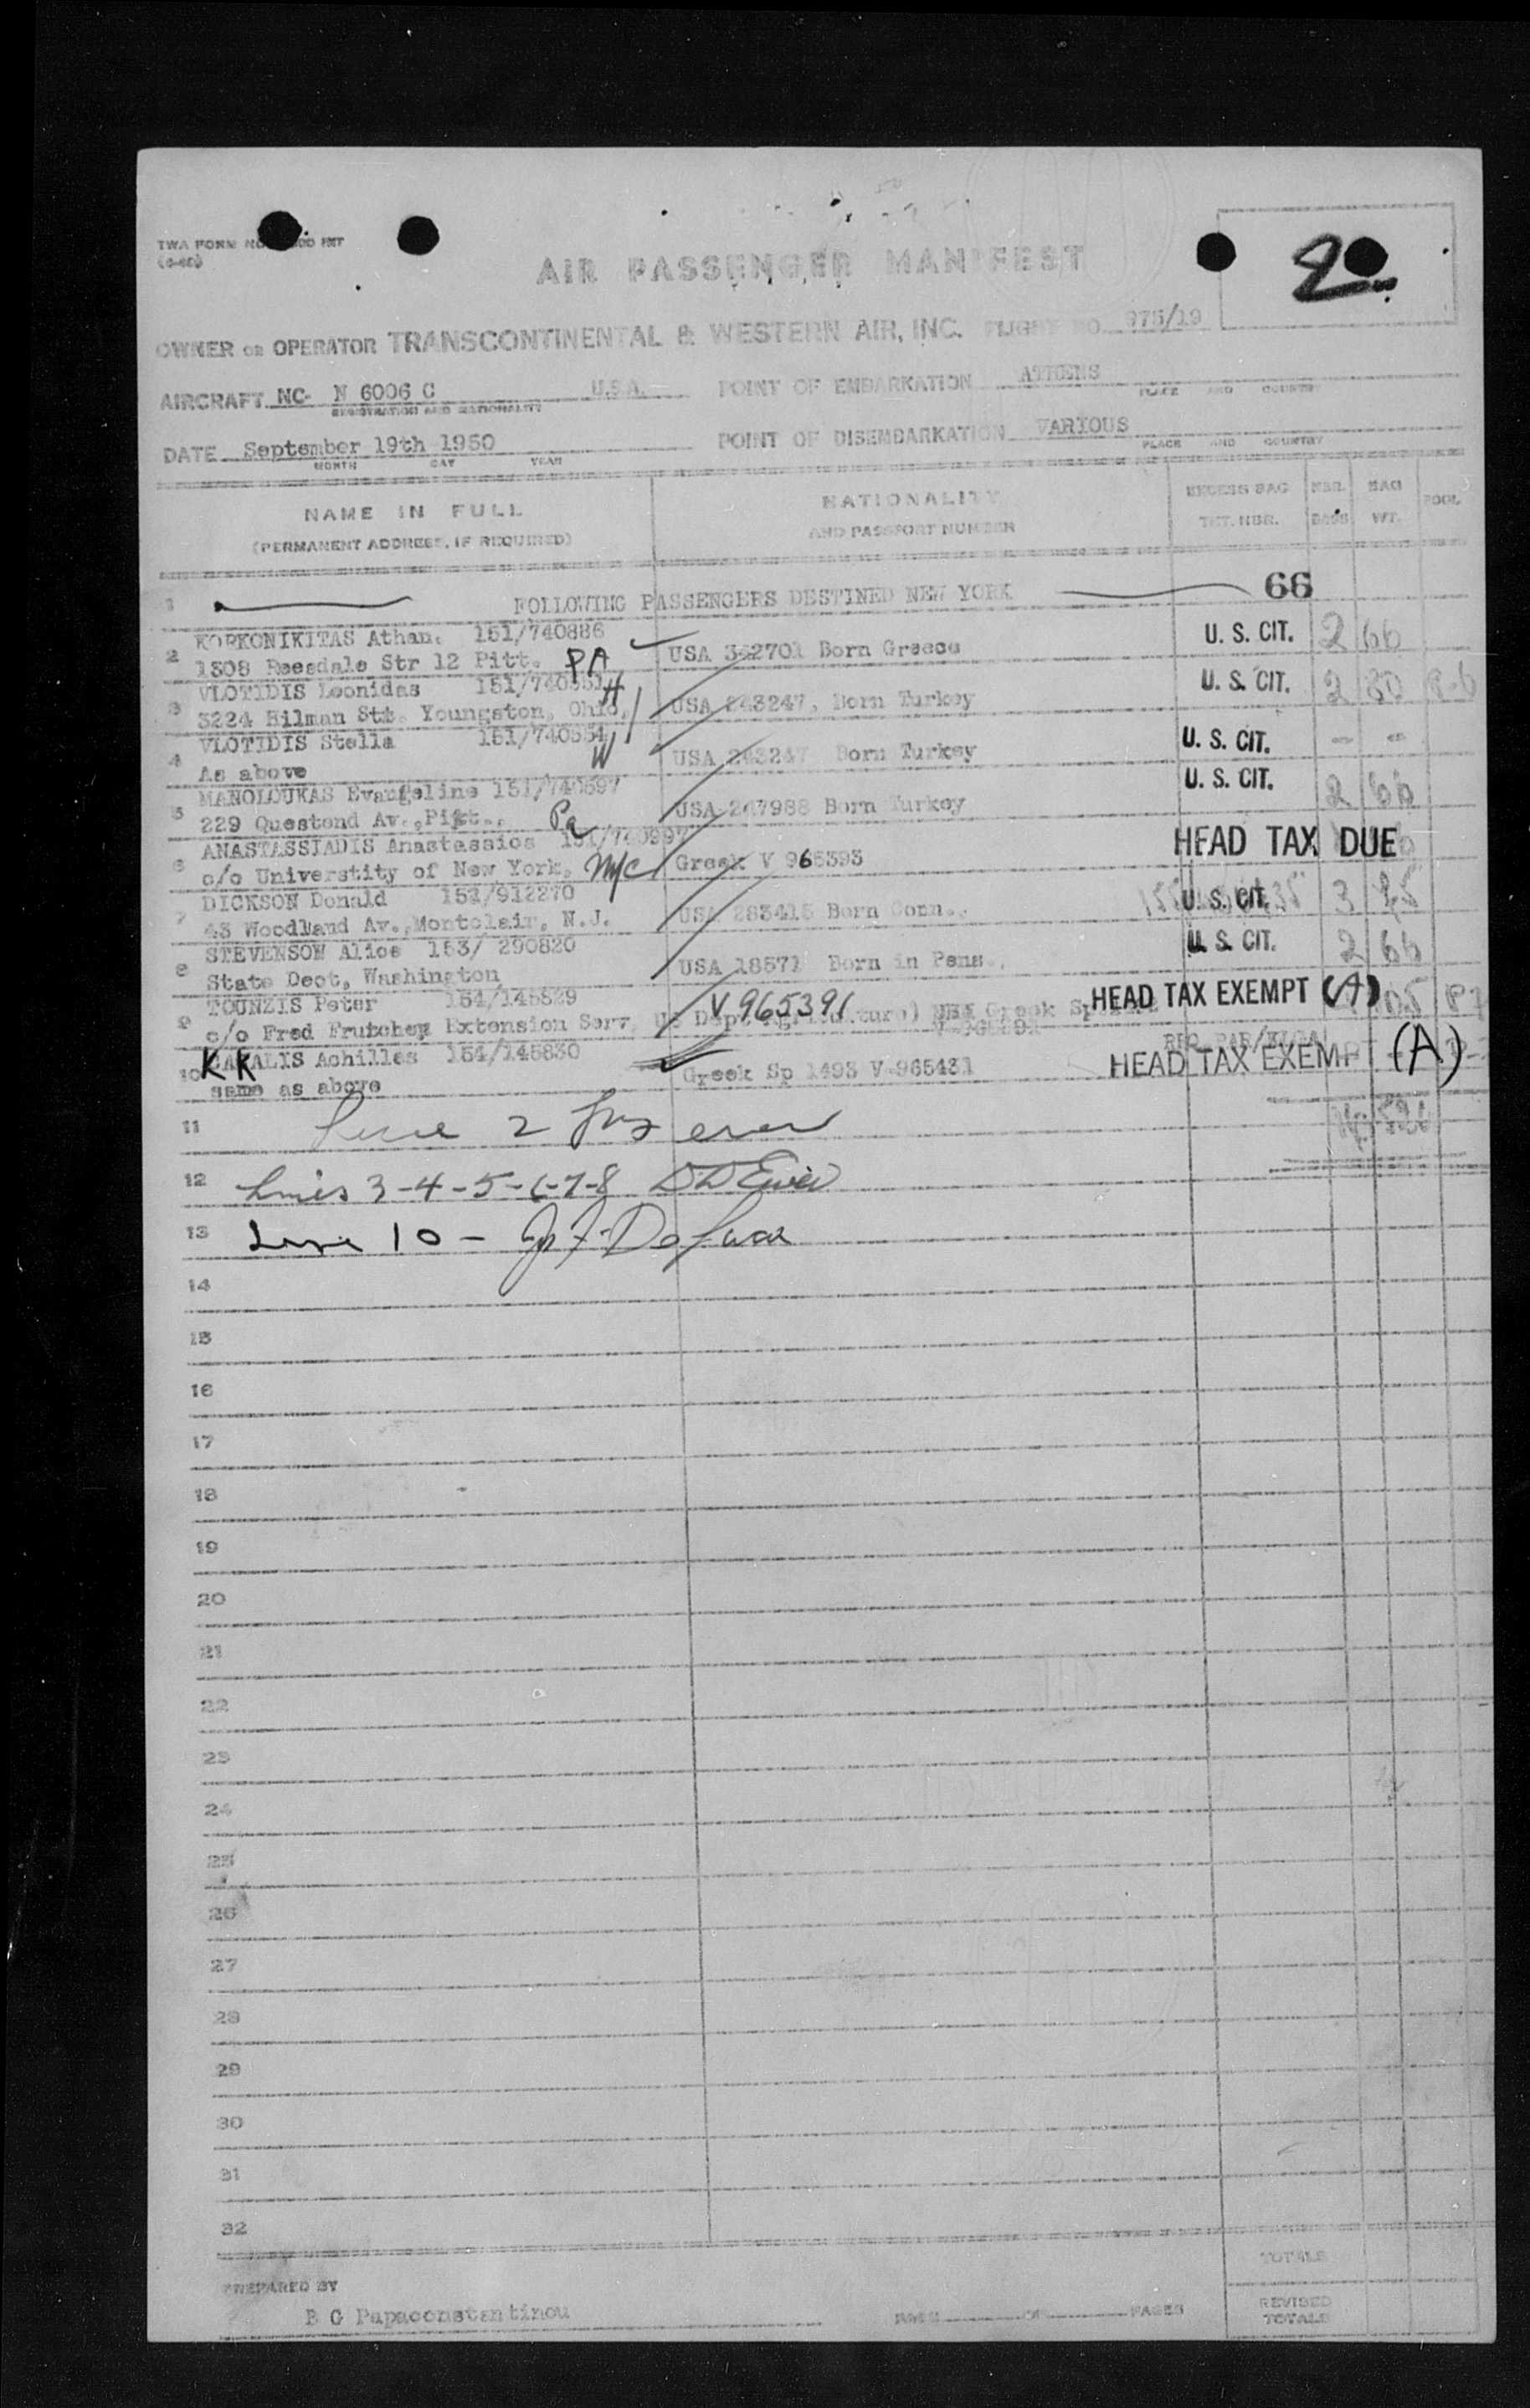 TWA FORM NO
AIR PASSENGER MANIFEST
20
OWNER OR OPERATOR TRANSCONTINENTAL & WESTERN AIR, INC. FLIGHT NO. 975/19
AIRCRAFT NC- N 6006 C U.S.A. POINT OF EMBARKATION ATHENS
REGISTRATION AND NATIONALITY PLACE AND COUNTRY
DATE September 19th 1950 POINT OF DISEMBARKATION VARIOUS
MONTH DAY YEAR PLACE AND COUNTRY
NAME IN FULL NATIONALITY EXCESS BAG NBR. BAG POOL
(PERMANENT ADDRESS, IF REQUIRED) AND PASSPORT NUMBER TKT. NBR. BAGS WT.
1 FOLLOWING PASSENGERS DESTINED NEW YORK 66
KORKONIKITAS Athan. 151/740886 U. S. CIT. 2 66
2 1308 Reesdale Str 12 Pitt. PA USA 342701 Born Greece
VLOTIDIS Leonidas H U. S. CIT. 2 80
3 3224 Hilman Str. Youngston, Ohio, USA 243247, Born Turkey
VLOTIDIS Stella 151/740554 W U. S. CIT. - -
4 As above USA 243247 Born Turkey
MANOLOUKAS Evangeline 151/740597 U. S. CIT. 2 66
5 229 Questend Av., Pitt., Pa USA 247988 Born Turkey
ANASTASSIADIS Anastassios HEAD TAX DUE
6 c/o Universtity of New York, NYC Greek V 965393
DICKSON Donald 151/912270 U. S. CIT. 3
7 43 Woodland Av., Montclair, N.J. USA 283415 Born Conn.,
STEVENSON Alice 153/ 290820 U. S. CIT. 2 66
8 State Dept, Washington USA 18571 Born in Pens.,
TOUNZIS Peter 154/145829 V 965391 HEAD TAX EXEMPT (A)
9 c/o Fred Frutchey Extension Serv. US Dept Agriculture) Greek
K K Achilles 154/145830 HEAD TAX EXEMPT (A)
10 same as above Greek Sp 1493 V 965431
11
12 Lines 3-4-5-6-7-8
13 Line 10 -
14
15
16
17
18
19
20
21
22
23
24
25
26
27
28
29
30
31
32
TOTALS
PREPARED BY
B G Papaconstantinou PAGE OF PAGES
REVISED
TOTALS